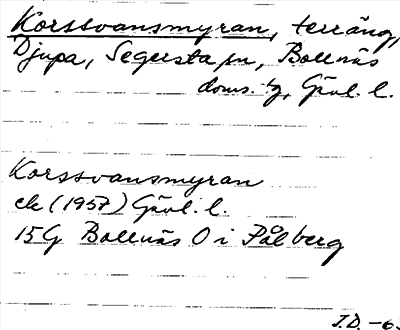 Korssvansmyran, terräng,
Djupa, Segersta sn, Bollnäs
doms. tg, Gävl. l.
Korssvansmyran
ek (1957) Gävl. l.
15G Bollnäs O i Pålberg
I.D. -63